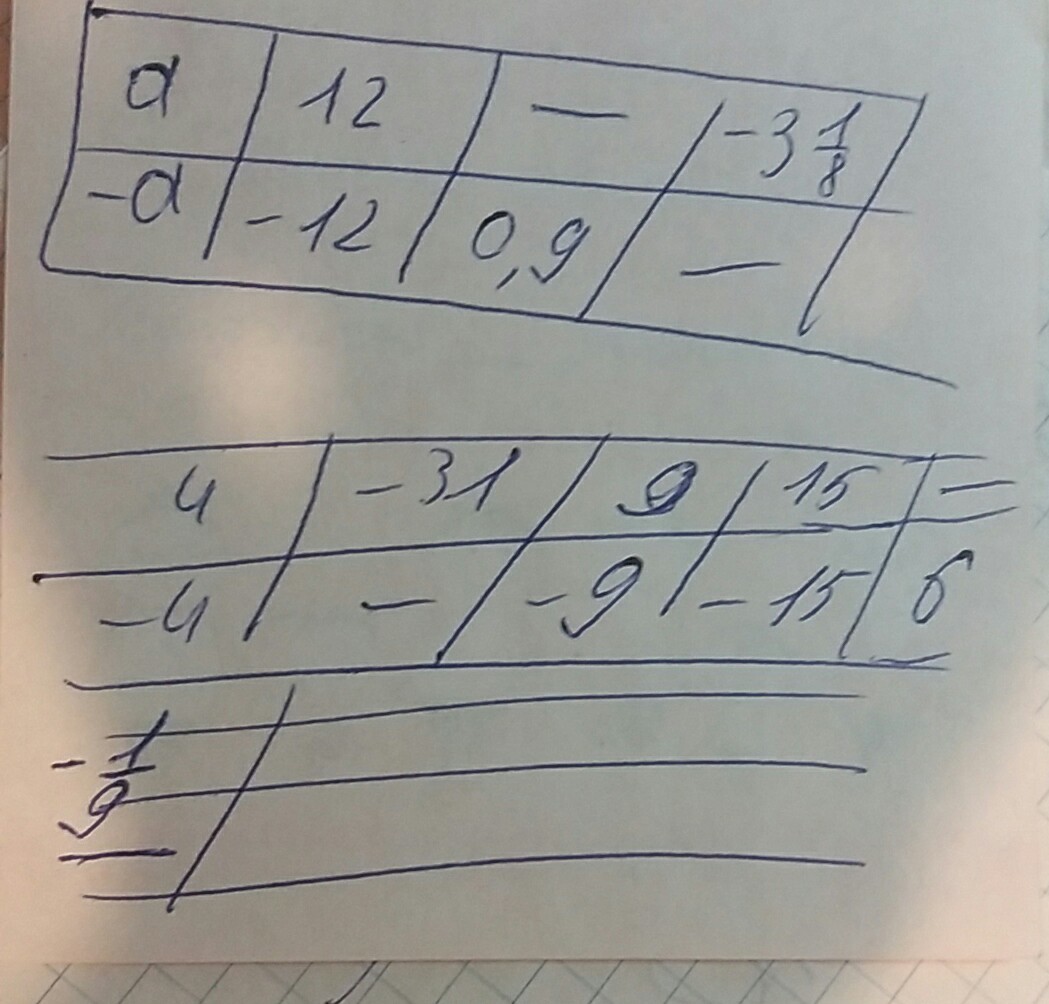 a 12 — -3 1/8
-a -12 0,9 —
4 -31 9 15 —
-4 — -9 -15 6
- 1/9
—